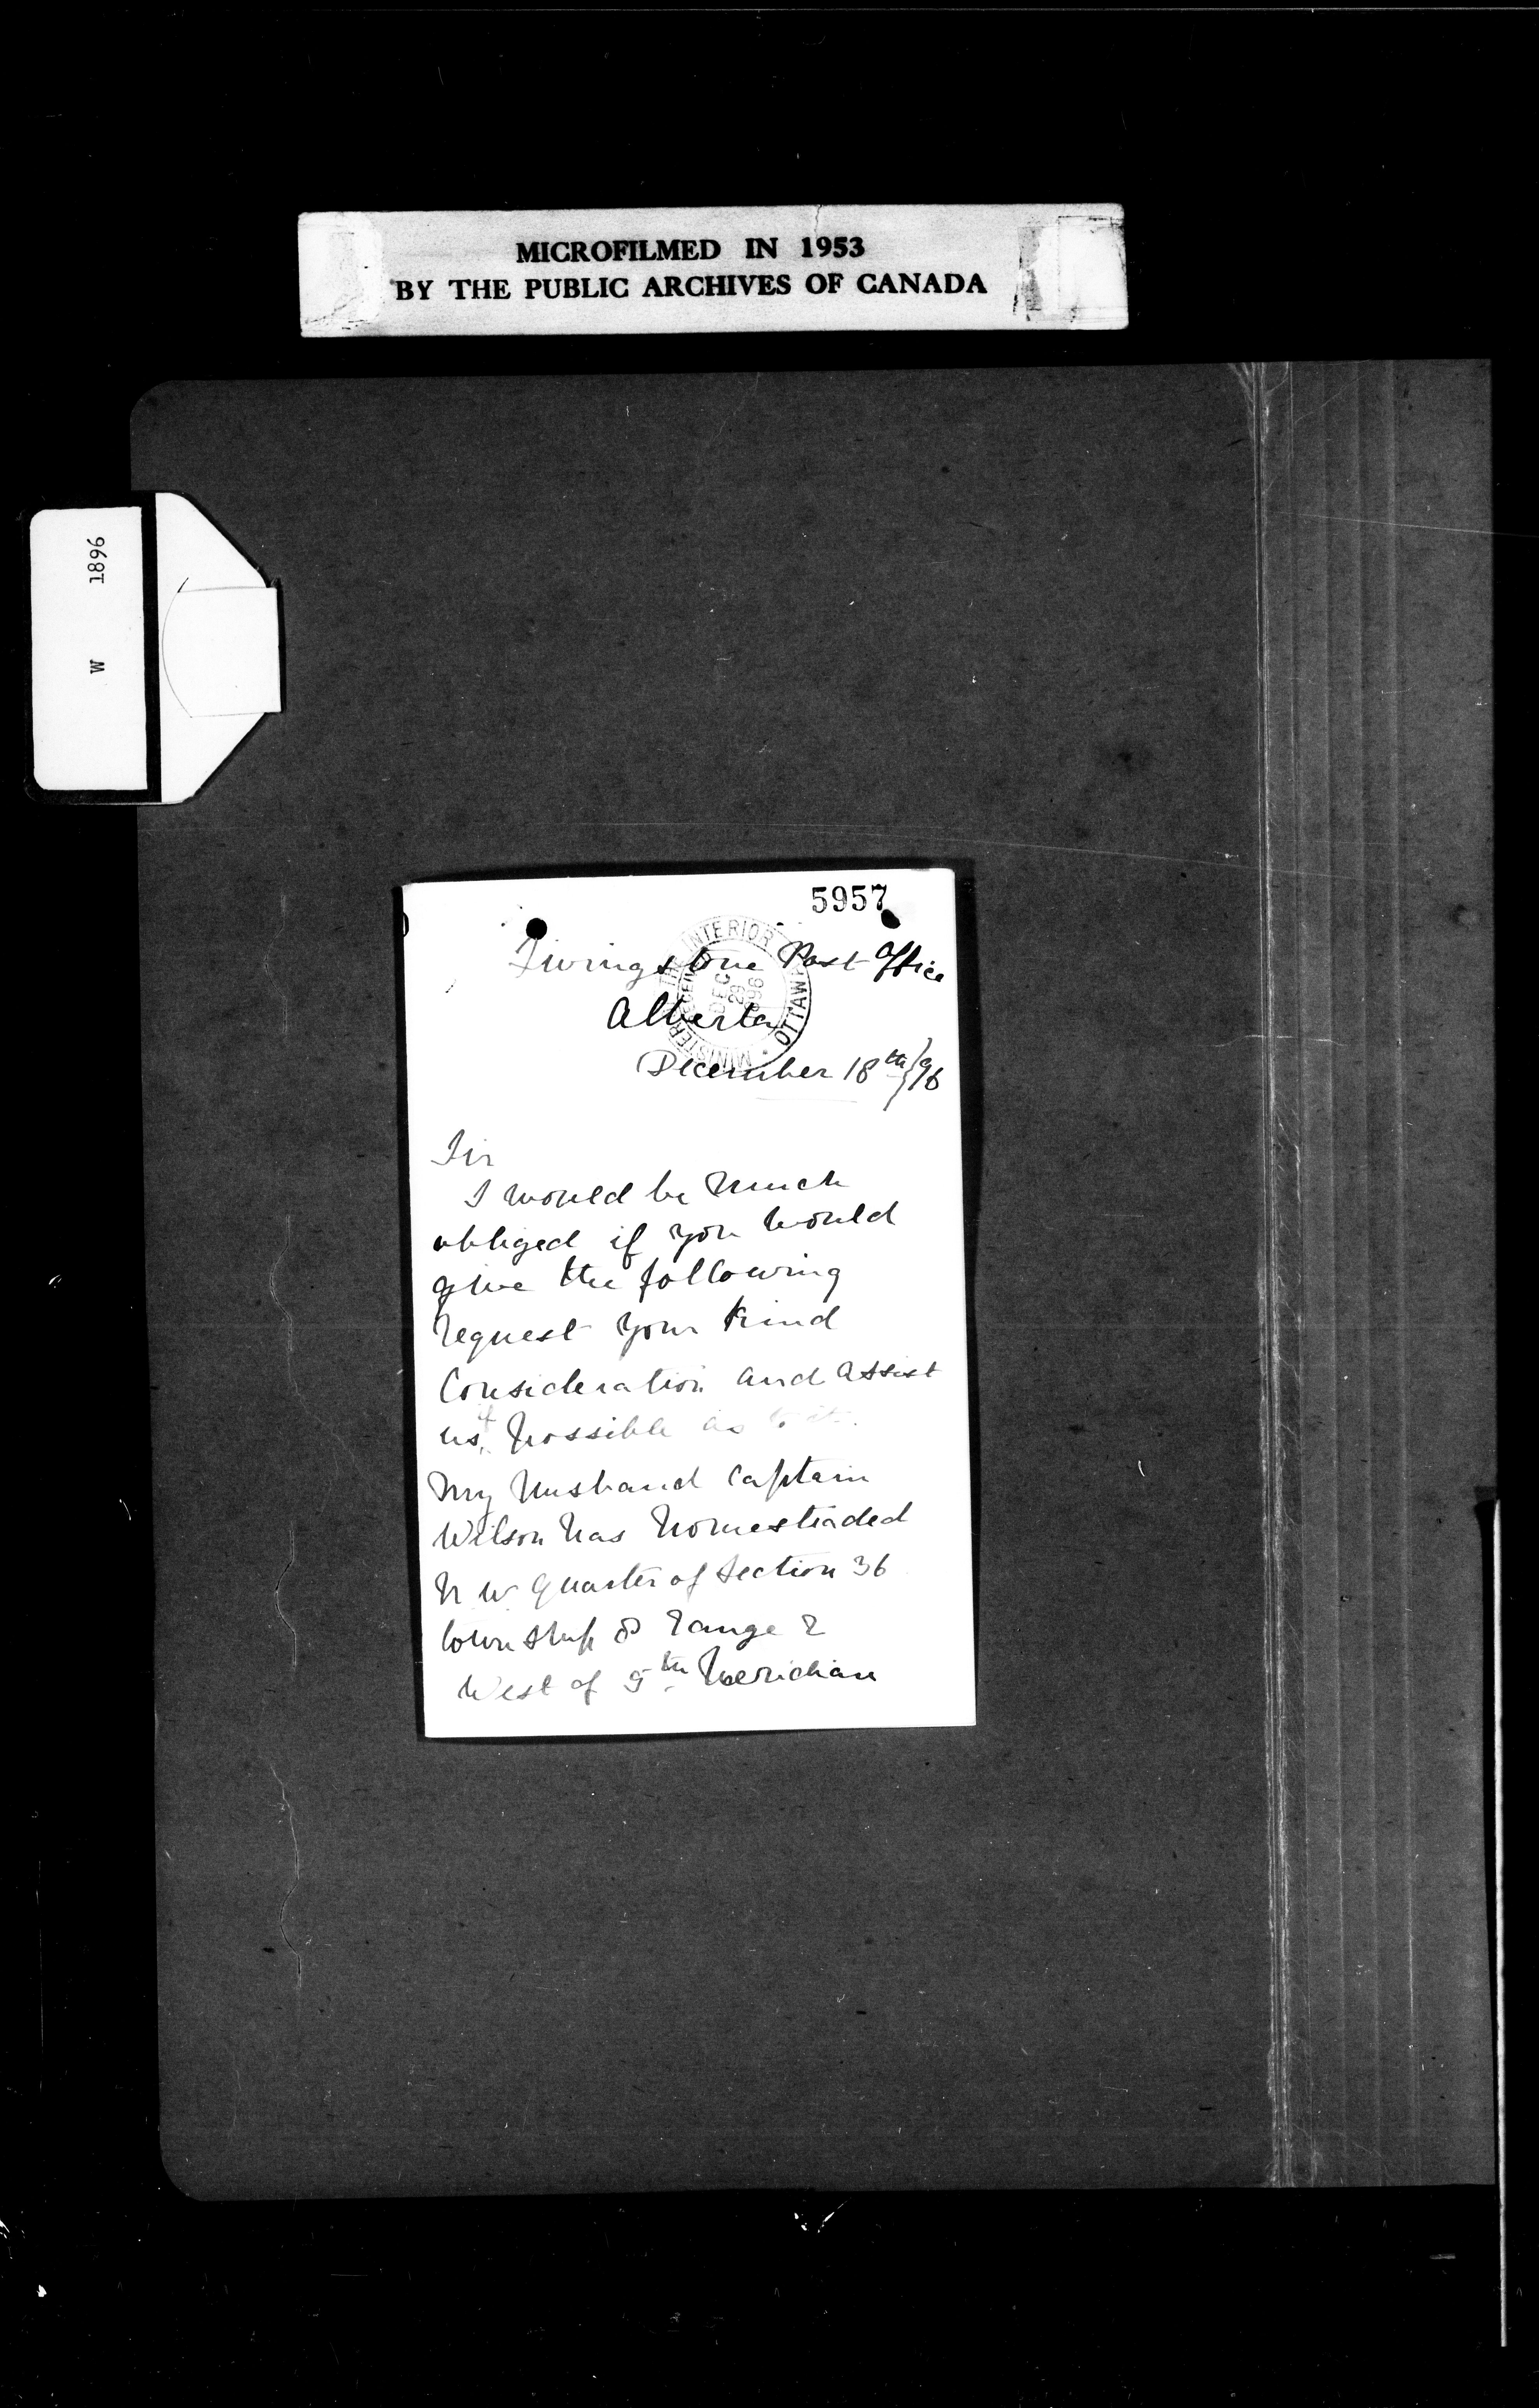 MICROFILMED IN 1953
BY THE PUBLIC ARCHIVES OF CANADA
W 1896
5957
MINISTER THE INTERIOR
OTTAWA
DEC
29
1896
Livingstone Post Office
Alberta
December 18th/96
Sir
I would be much
obliged if you would
give the following
request your kind
Consideration and assist
us if possible as to it.
My husband Captain
Wilson has homesteaded
N. W. Quarter of Section 36
township 8 range 2
West of 5th Meridian